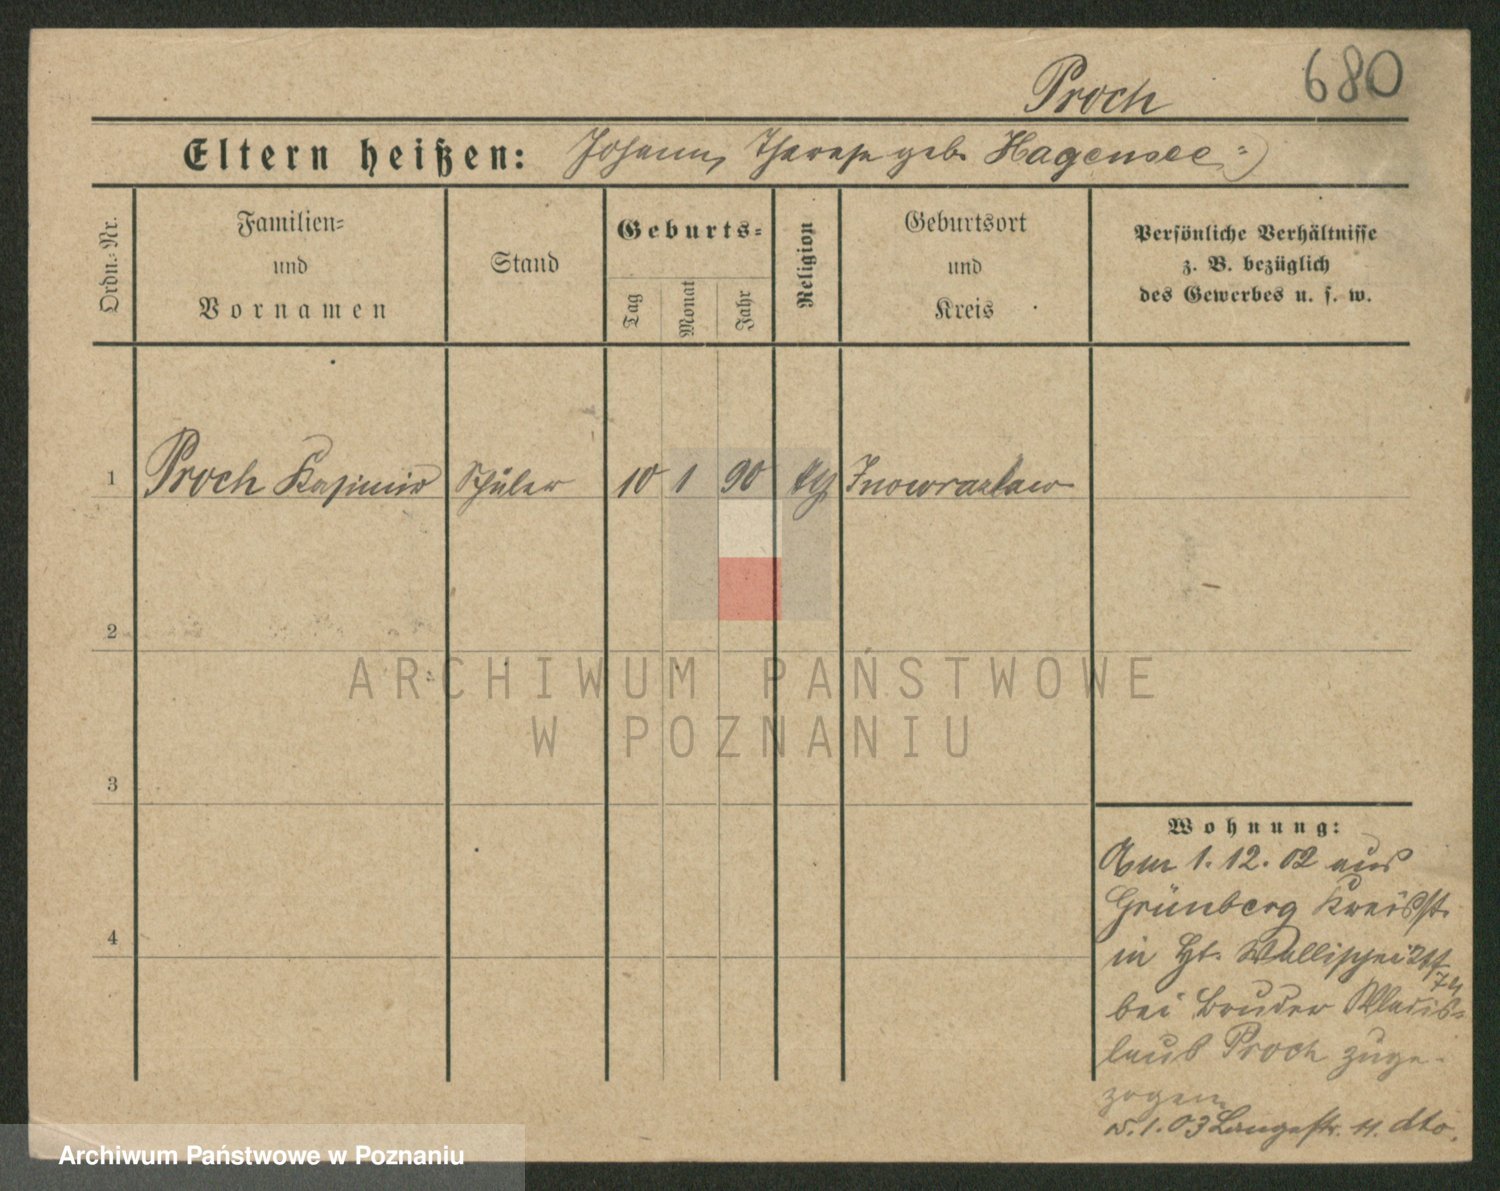 Proch 680
Eltern heißen: Johann, Therese geb. Hagensee
Ordn.-Nr.
Familien-
und
Vornamen
Stand
Geburts-
Tag
Monat
Jahr
Religion
Geburtsort
und
Kreis
Persönliche Verhältnisse
z. B. bezüglich
des Gewerbes u. s. w.
1 Proch Kasimir Schüler 10 1 90 Inowrazlaw
2
3
4
ARCHIWUM PAŃSTWOWE
W POZNANIU
Wohnung:
Am 1. 12. 02 aus
Grünberg
in Wallischei
bei Bruder Wladis-
laus Proch zuge-
zogen
5. 1. 03 Langestr. 11. dto.
Archiwum Państwowe w Poznaniu